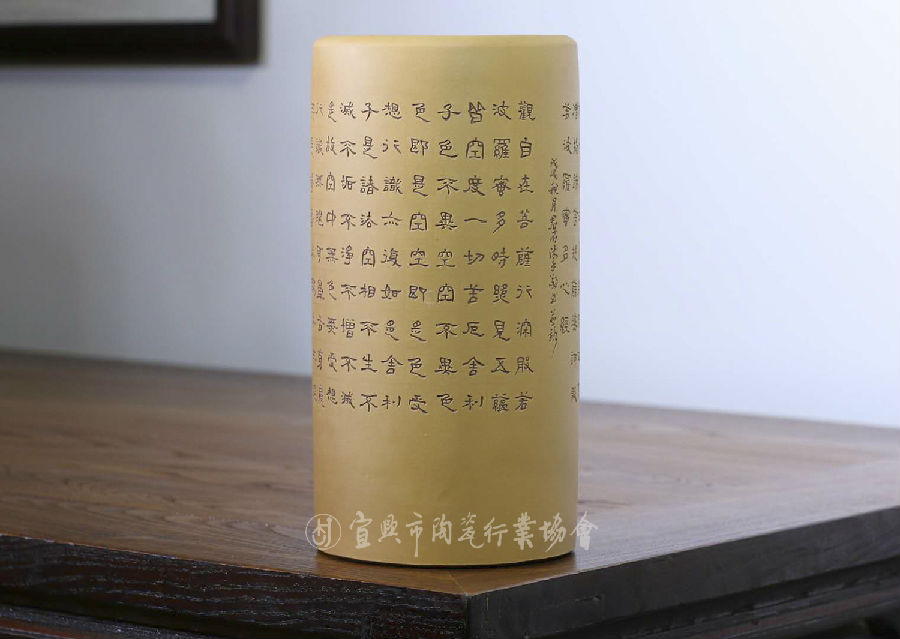 若波羅蜜多心經
觀自在菩薩行深般若
波羅蜜多時照見五蘊
皆空度一切苦厄舍利
子色不異空空不異色
色即是空空即是色受
想行識亦復如是舍利
子是諸法空相不生不
滅不垢不淨不增不減
是故空中無色無受想
行識無眼耳鼻舌身
宜興市陶瓷行業協會